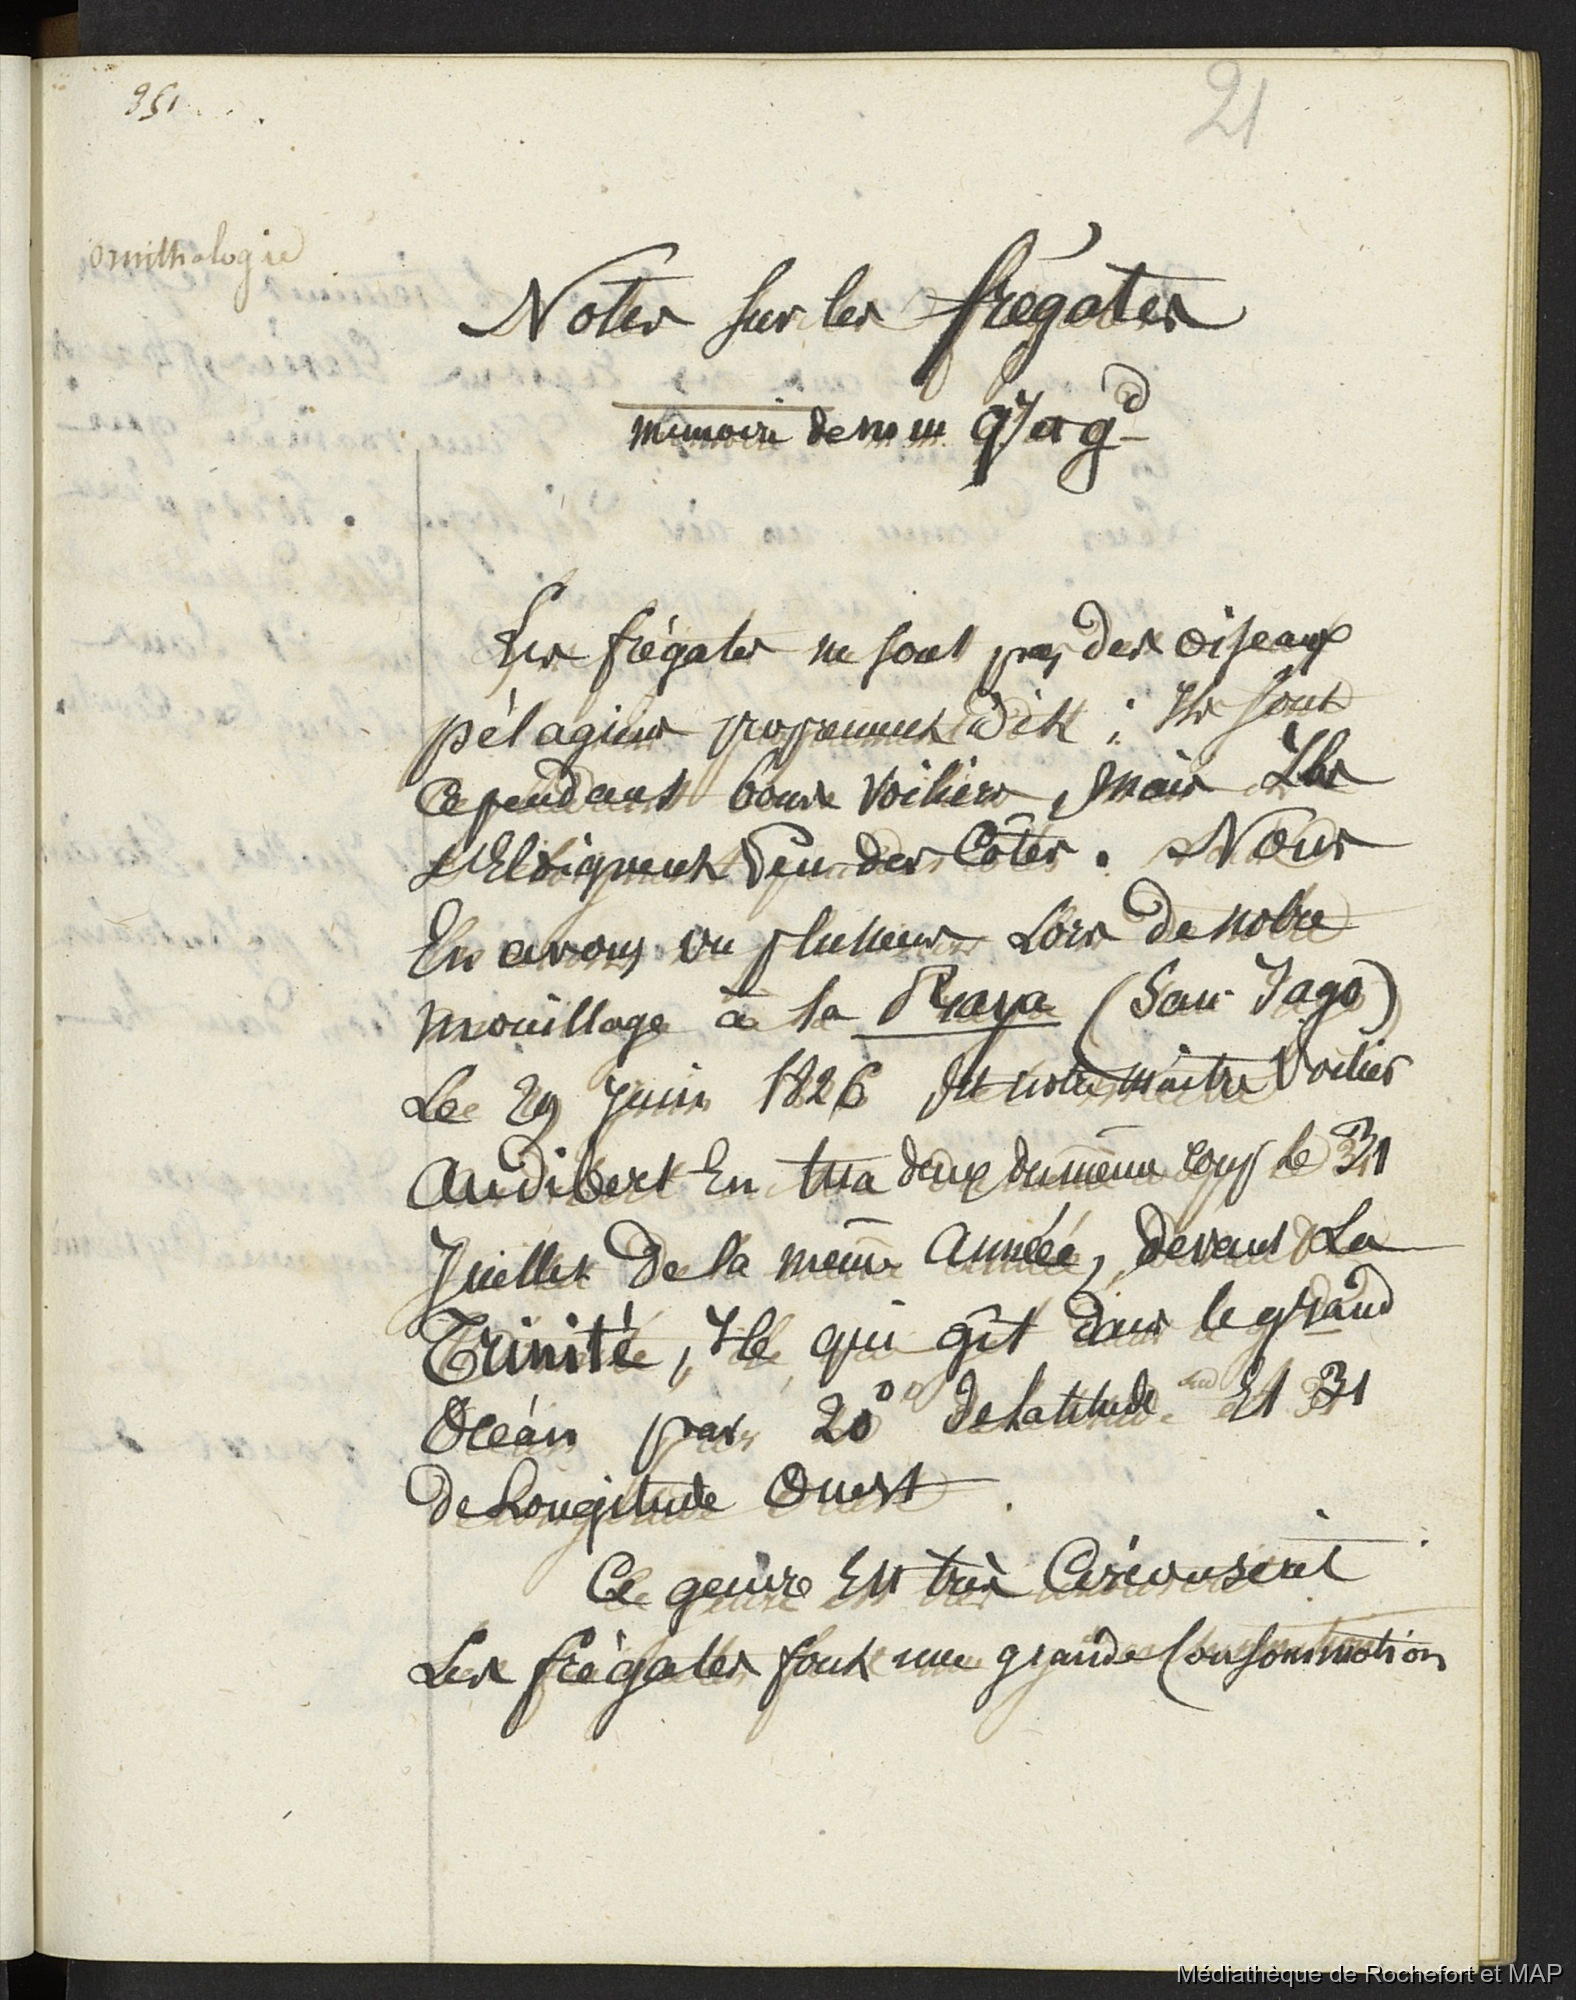 351
21
ornithologie
Notes sur les frégates
mémoire de m m q. et g.d
Les frégates ne sont pas des oiseaux
pélagiens proprement dits ; Ils sont
Cependant bons Voiliers, mais Ils
s'Eloignent peu des Côtes. Nous
En avons vu plusieurs Lors de notre
mouillage à la Praya (San-Iago)
Le 29 juin 1826 et notre maître Voilier
Audibert En tua deux du même coup le 31
Juillet de la même année, devant La
Trinité, Ile qui gît dans le grand
Océan par 20° de Latitude Sud Et 31
de Longitude Ouest
Ce genre Est très
Les frégates font une grande Consommation
Médiathèque de Rochefort et MAP